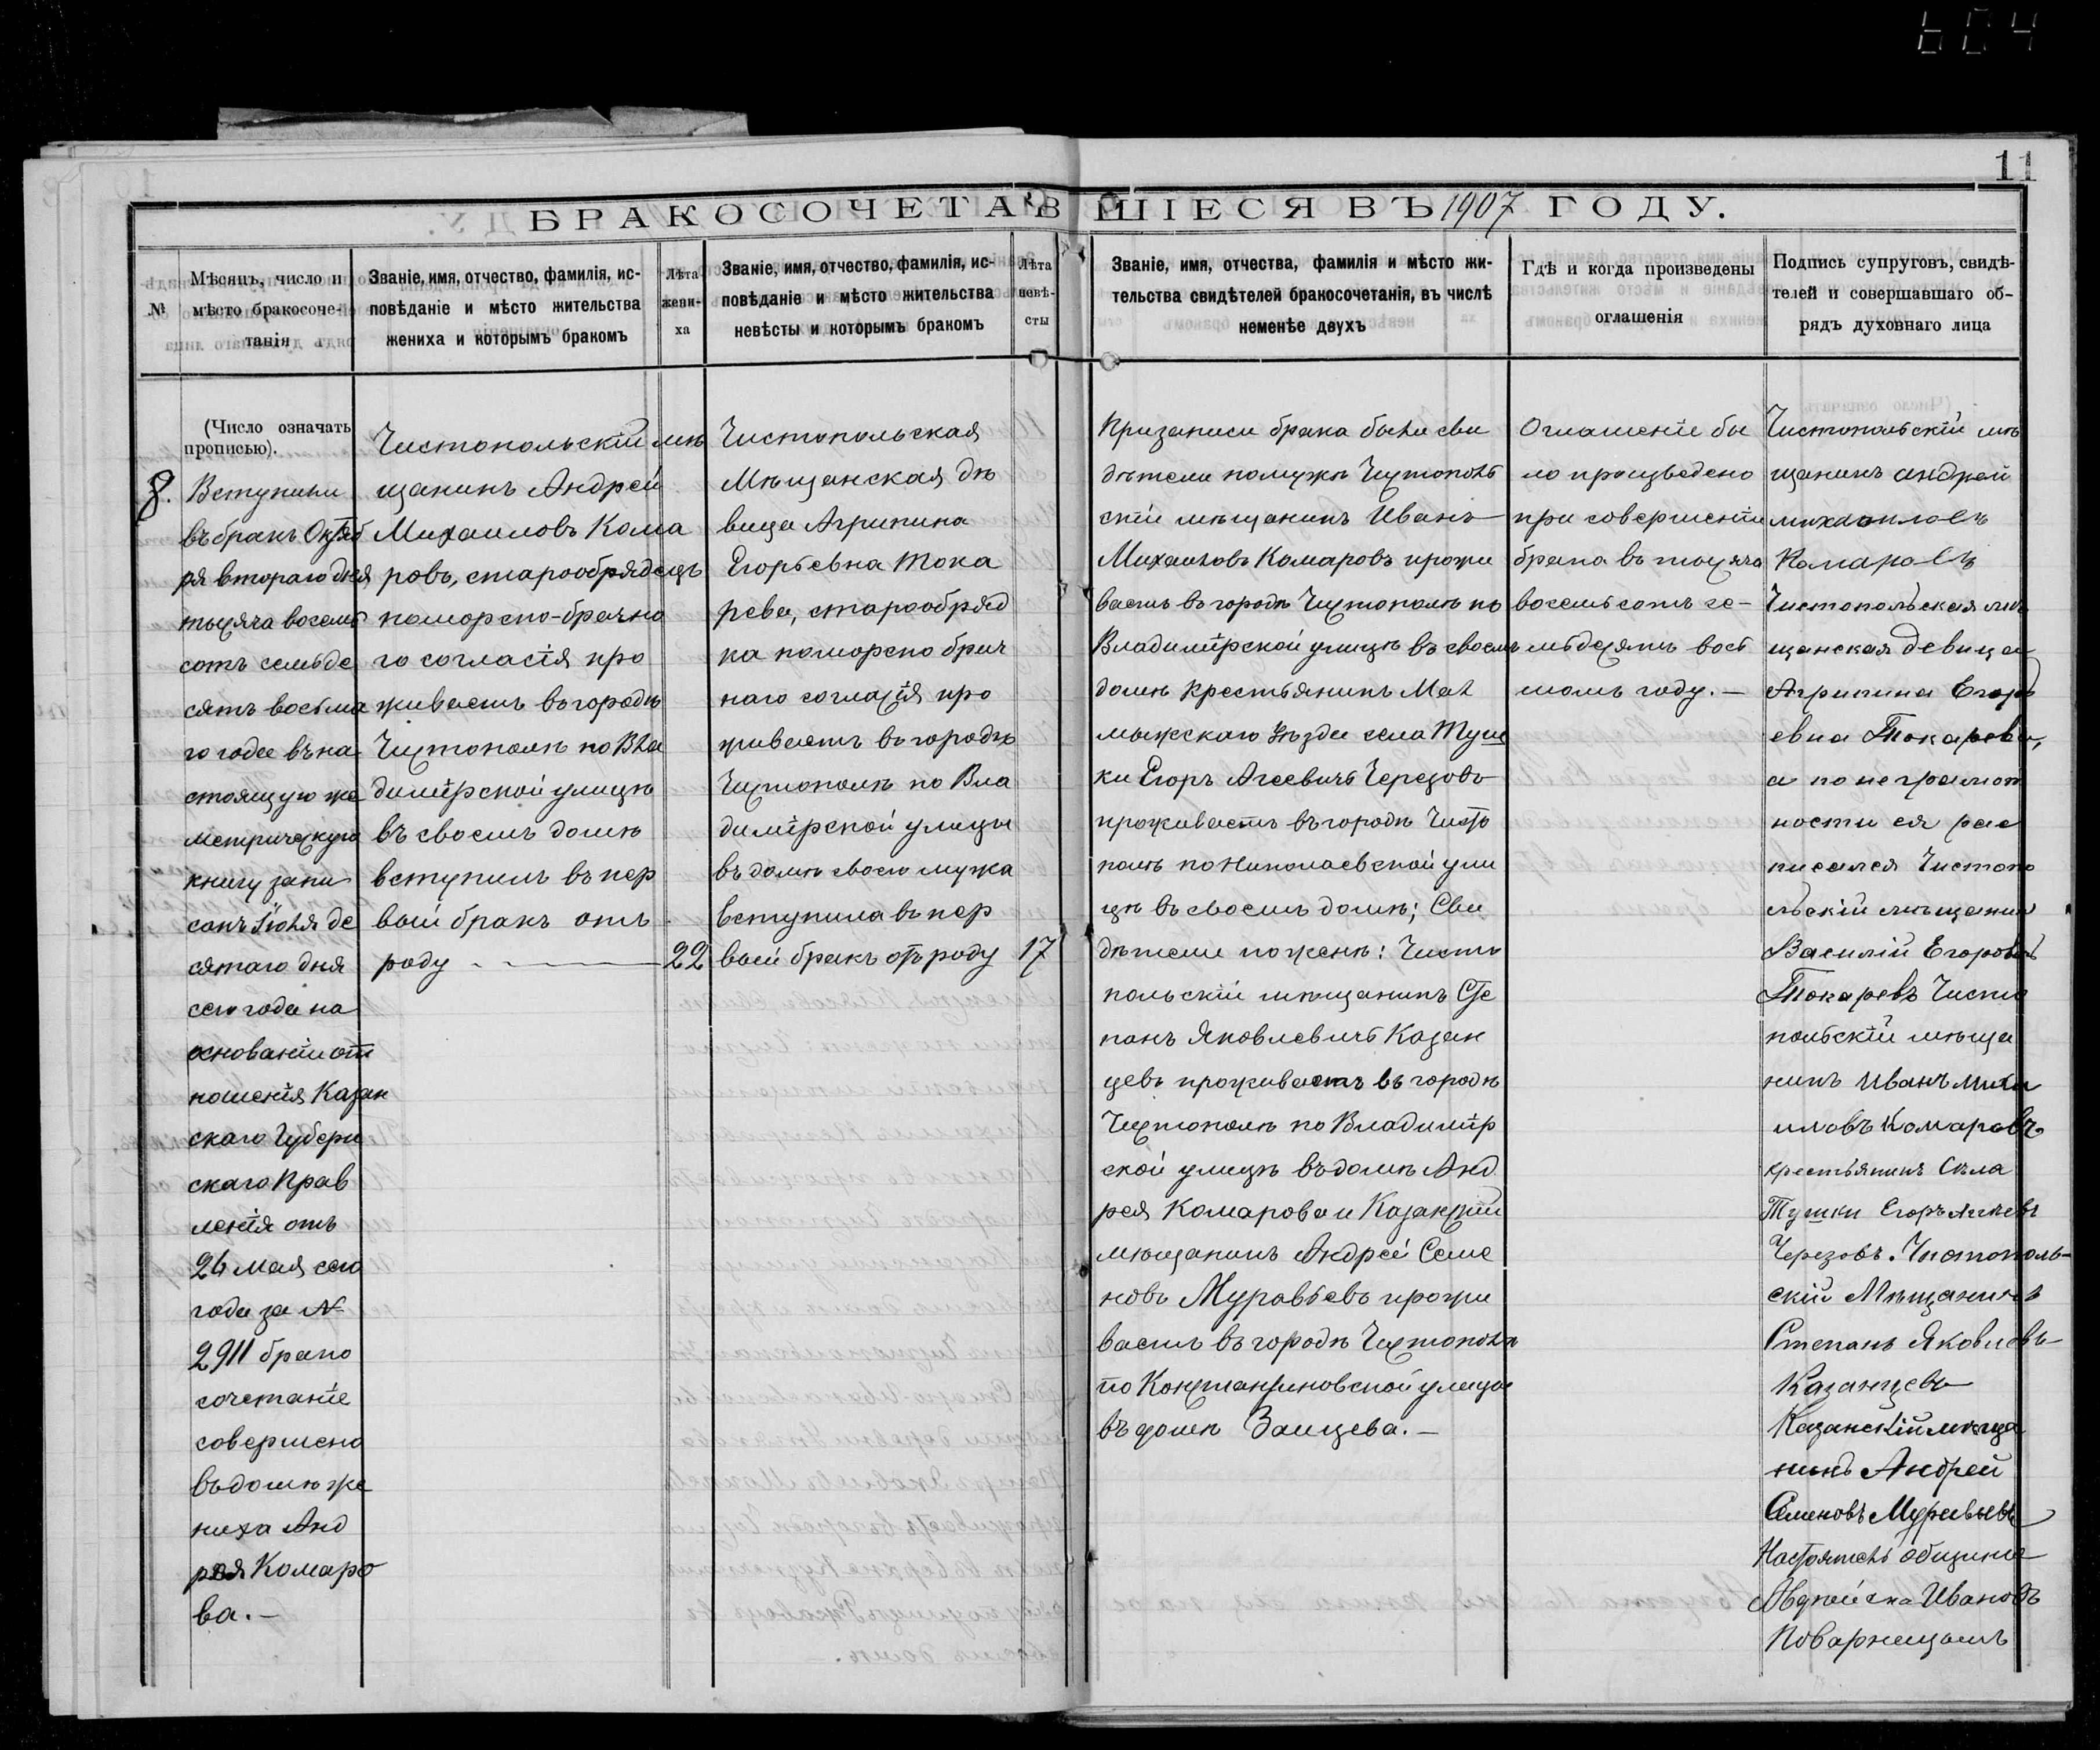 604
11
БРАКОСОЧЕТАВШІЕСЯ ВЪ 1907 ГОДУ.
№
Мѣсяцъ, число и
мѣсто бракосоче-
танія
Званіе, имя, отчество, фамилія, ис-
повѣданіе и мѣсто жительства
жениха и которымъ бракомъ
Лѣта
жени-
ха
Званіе, имя, отчество, фамилія, ис-
повѣданіе и мѣсто жительства
невѣсты и которымъ бракомъ
Лѣта
невѣ-
сты
Званіе, имя, отчества, фамилія и мѣсто жи-
тельства свидѣтелей бракосочетанія, въ числѣ
неменѣе двухъ
Гдѣ и когда произведены
оглашенія
Подпись супруговъ, свидѣ-
телей и совершавшаго об-
рядъ духовнаго лица
(Число означать
прописью).
8.
Вступили
въ бракъ Октяб
ря втораго дня
тысяча восемь
сотъ семьде
сятъ восьма
го года въ на
стоящую же
метрическую
книгу запи
санъ Іюля де
сятаго дня
сего года на
основаніи от
ношенія Казан
скаго Губерн
скаго Прав
ленія отъ
26 мая сего
года за №
2911 брако
сочетаніе
совершено
въ домѣ же
ниха Анд
рея Комаро
ва.—
Чистопольскій мѣ
щанинъ Андрей
Михаиловъ Кома
ровъ, старообрядецъ
поморско-брачно
го согласія про
живаетъ въ городѣ
Чистополѣ по Вла
димірской улицѣ
въ своемъ домѣ
вступилъ въ пер
вый бракъ отъ
роду
22
Чистопольская
Мѣщанская дѣ
вица Агрипина
Егорьевна Тока
рева, старообряд
ка поморско брач
наго согласія про
живаетъ въ городѣ
Чистополѣ по Вла
димірской улицы
въ домѣ своего мужа
вступила въ пер
вый бракъ отъ роду
17
При записи брака были сви
дѣтели по мужѣ Чистополь
скій мѣщанинъ Иванъ
Михаиловъ Комаровъ прожи
ваетъ въ городѣ Чистополѣ по
Владимірской улицѣ въ своемъ
домѣ крестьянинъ Мал
мыжскаго уѣзда села Туш
ки Егоръ Агеевичъ Черезовъ
проживаетъ въ городѣ Чисто
полѣ по Николаевской ули
цѣ въ своемъ домѣ; Сви
дѣтели по женѣ: Чисто
польскій мѣщанинъ Сте
панъ Яковлевичъ Казан
цевъ проживаетъ въ городѣ
Чистополѣ по Владимір
ской улицѣ въ домѣ Анд
рея Комарова и Казанскій
мѣщанинъ Андрей Семе
новъ Муравьевъ прожи
ваетъ въ городѣ Чистополѣ
по Константиновской улицы
въ домѣ Заицева.—
Оглашеніе бы
ло произведено
при совершеніи
брака въ тысяча
восемьсотъ се-
мьдесятъ вось
момъ году.—
Чистопольскій мѣ
щанинъ андрей
михаиловъ
Комаровъ
Чистопольская мѣ
щанская девица
Агрипина Егорь
евна Токарева,
а по неграмот
ности ея рас
писался Чистопо
льскій мѣщанин
Василій Егоровъ
Токаревъ Чисто
польскій мѣща
нинъ Иванъ Миха
иловъ Комаровъ
крестьянинъ Села
Тушки Егоръ Агѣевъ
Черезовъ. Чистополь-
скій Мѣщанинъ
Степанъ Яковлевъ
Казанцевъ
Казанскій мѣща
нинъ Андрей
Семеновъ Муравьевъ
Настоятель общины
Ивановъ